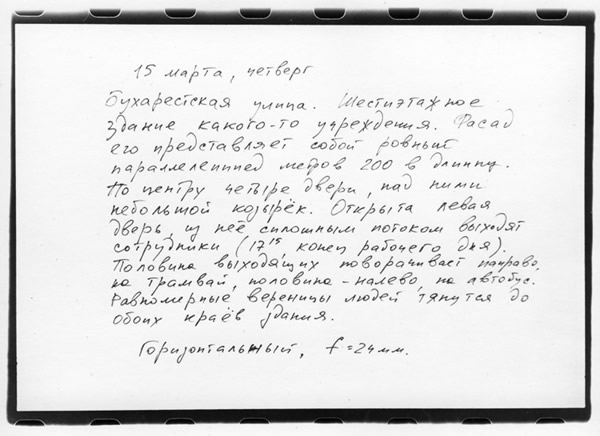 15 марта, четверг
Бухарестская улица. Шестиэтажное
здание какого-то учреждения. Фасад
его представляет собой ровный
параллелепипед метров 200 в длинну.
По центру четыре двери, над ними
небольшой козырёк. Открыта левая
дверь, из неё сплошным потоком выходят
сотрудники (17¹⁵, конец рабочего дня).
Половина выходящих поворачивает направо,
на трамвай, половина - налево, на автобус.
Равномерные вереницы людей тянутся до
обоих краёв здания.
Горизонтальный, f=24мм.